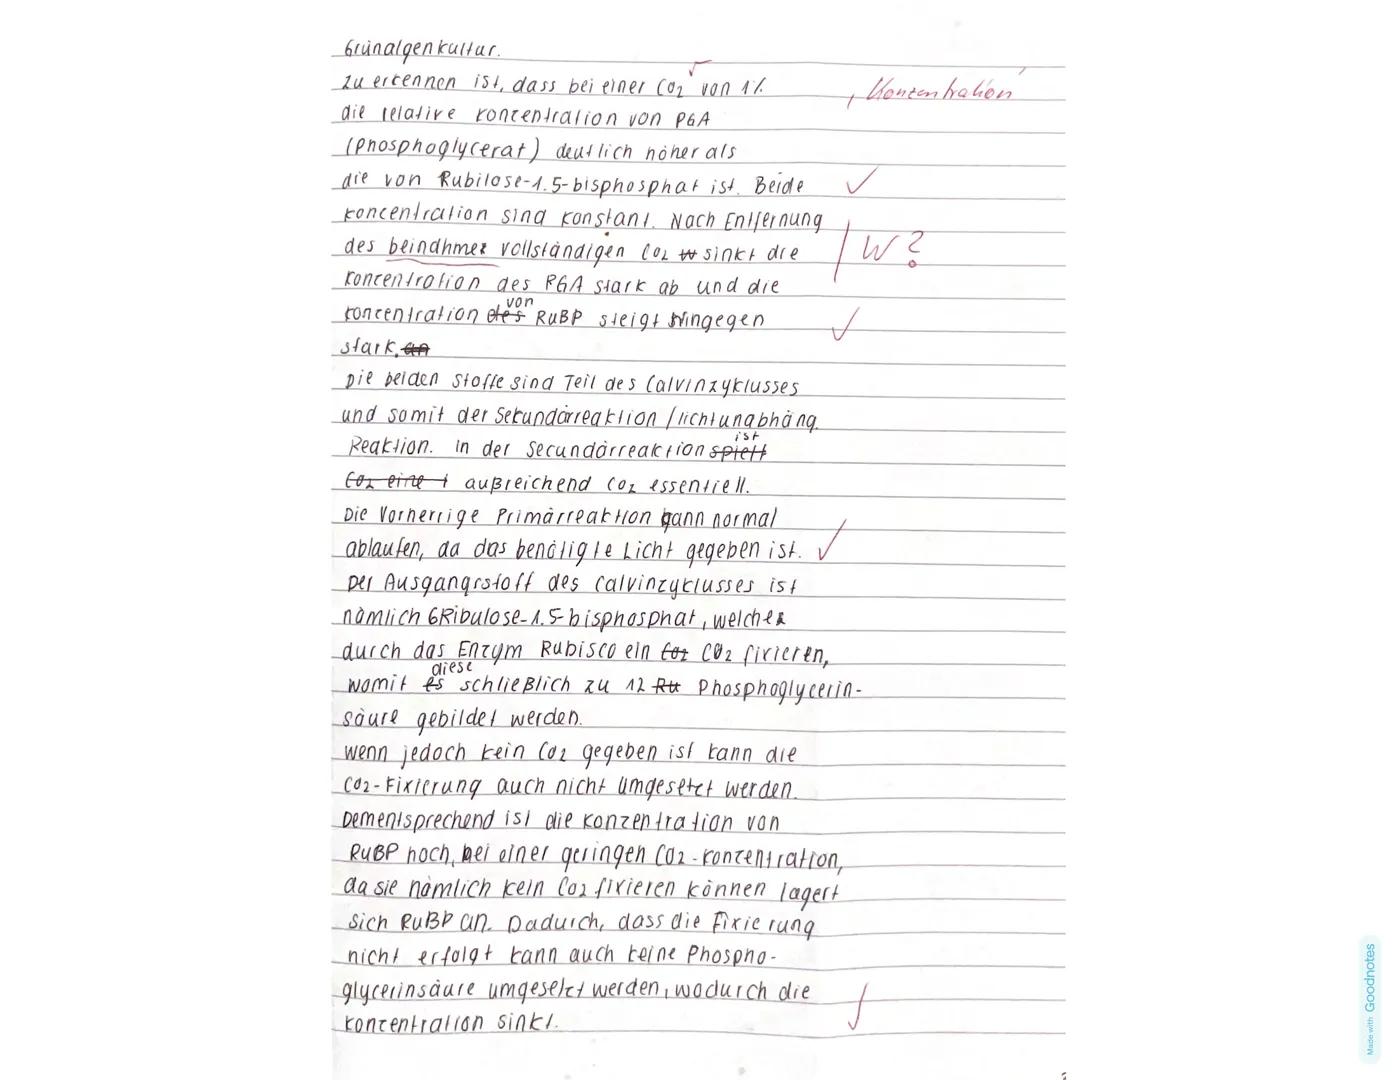 Grünalgenkultur.
Zu erkennen ist, dass bei einer CO2 √ von 1%
, Konzentration
die relative Koncentration von PGA
(Phosphoglycerat) deutlich höher als
die von Rubilose-1.5-bisphosphat ist. Beide ✓
Koncentration sind konstant. Nach Entfernung
des beindhmer vollständigen CO2 sinkt die
W?
Koncentration des PGA stark ab und die
von
Koncentration des RuBP steigt hingegen ✓
stark. an
Die beiden Stoffe sind Teil des Calvinzyklusses
und somit der Sekundärreaktion / lichtunabhäng.
ist
Reaktion. In der Secundärreaktion spielt
CO2 eine t außreichend CO2 essentiell.
Die Vorherrige Primärreaktion kann normal
ablaufen, da das benötigte Licht gegeben ist. ✓
Der Ausgangsstoff des Calvinzyklusses ist
nämlich 6Ribulose-1.5-bisphosphat, welches
durch das Enzym Rubisco ein CO2 CO2 fixieren,
diese
womit es schließlich zu 12 Ru Phosphoglycerin-
säure gebildet werden.
wenn jedoch kein CO2 gegeben ist kann die
CO2-Fixierung auch nicht umgesetzt werden.
Dementsprechend ist die Konzentration von
RuBP hoch, bei einer geringen CO2-Konzentration,
da sie nämlich kein CO2 fixieren können lagert
sich RuBP an. Dadurch, dass die Fixierung
nicht erfolgt kann auch keine Phospho-
glycerinsäure umgesetzt werden, wodurch die
Koncentration sinkt.
Made with Goodnotes